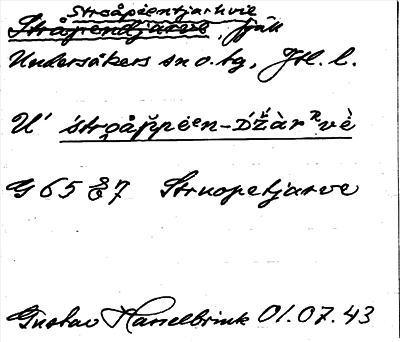 Stroåpėentjarhvie
Ståpiendjarve, fjäll
Undersåkers sn o. tg, Jtl. l.
U' 'strǫåp̌pėen-Džàrᴿvè
G 65 8/0 7 Struopetjarve
Gustav Hasselbrink 01.07.43